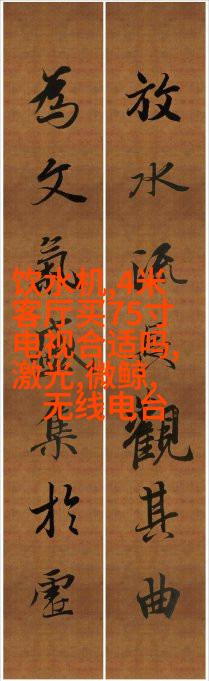 放水流觀其曲
為文氣集於虛
饮水机,4米
客厅买75寸
电视合适吗,
激光,微鲸,
无线电台